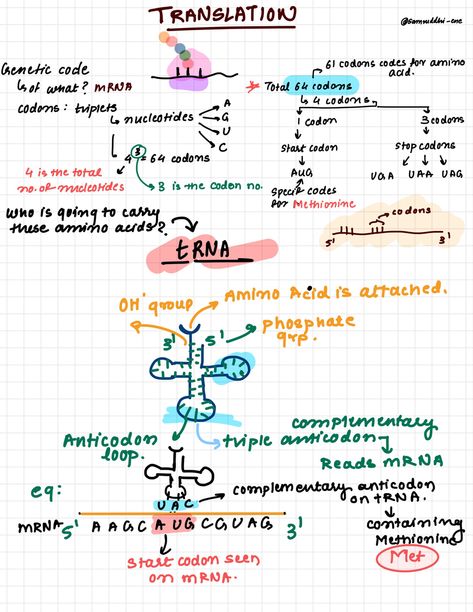 TRANSLATION
@Samruddhi-cne
Genetic code
↳ of what? mRNA
codons : triplets
↳ nucleotides
A
G
U
C
4³ = 64 codons
4 is the total
no. of nucleotides
3 is the codon no.
61 codons codes for amino
acid.
* Total 64 codons
↳ 4 codons
1 codon
Start codon
AUG
Specific codes
for Methionine
3 codons
Stop codons
UGA UAA UAG
codons
5' 3'
who is going to carry
these amino acids?
tRNA
OH⁻ group
Amino Acid is attached.
3' 5'
phosphate
grp.
Anticodon
loop.
triple anticodon
complementary
Reads mRNA
eq:
U A C
complementary anticodon
on tRNA.
containing
Methionine
Met
mRNA 5' A A G C A U G C G U A G 3'
start codon seen
on mRNA.